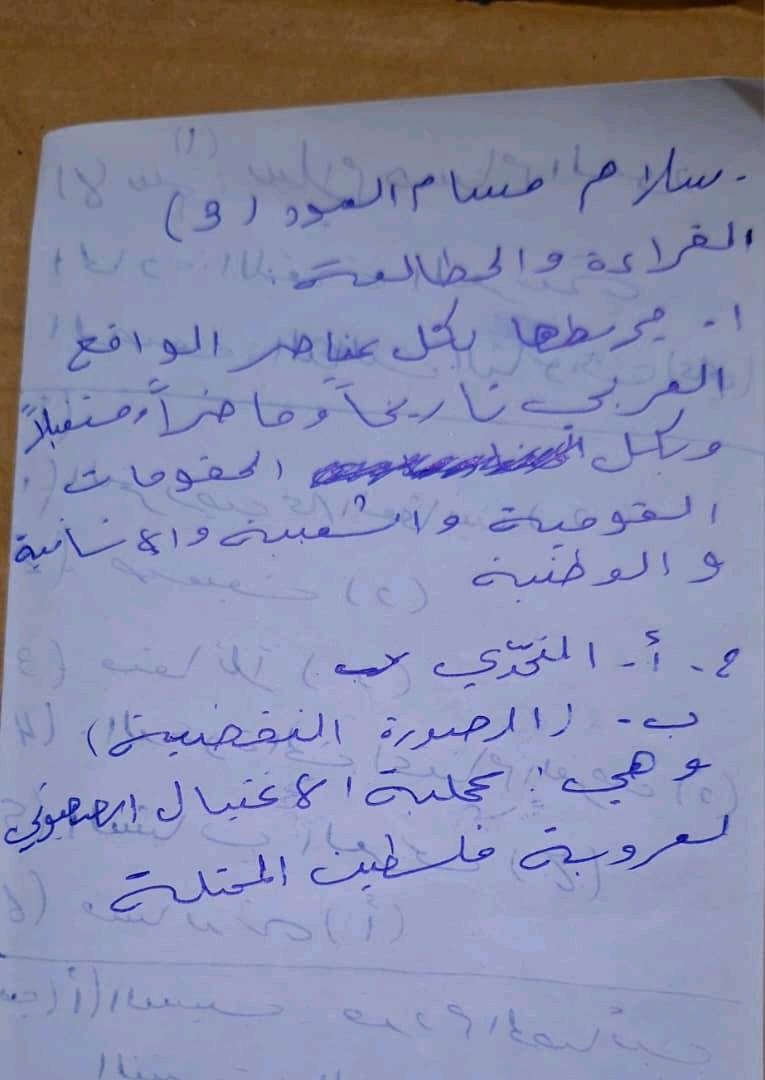 - سلام حسام العبود (9)
القراءة والمطالعة
1- يربطها بكل عناصر الواقع
العربي تاريخاً وحاضراً ومستقبلاً
وبكل المقومات
القومية والشعبية والانسانية
والوطنية
2- أ- التحدّي
ب- (الصورة النقضية)
وهي: عملية الاغتيال الصهيوني
لعروبة فلسطين المحتلة